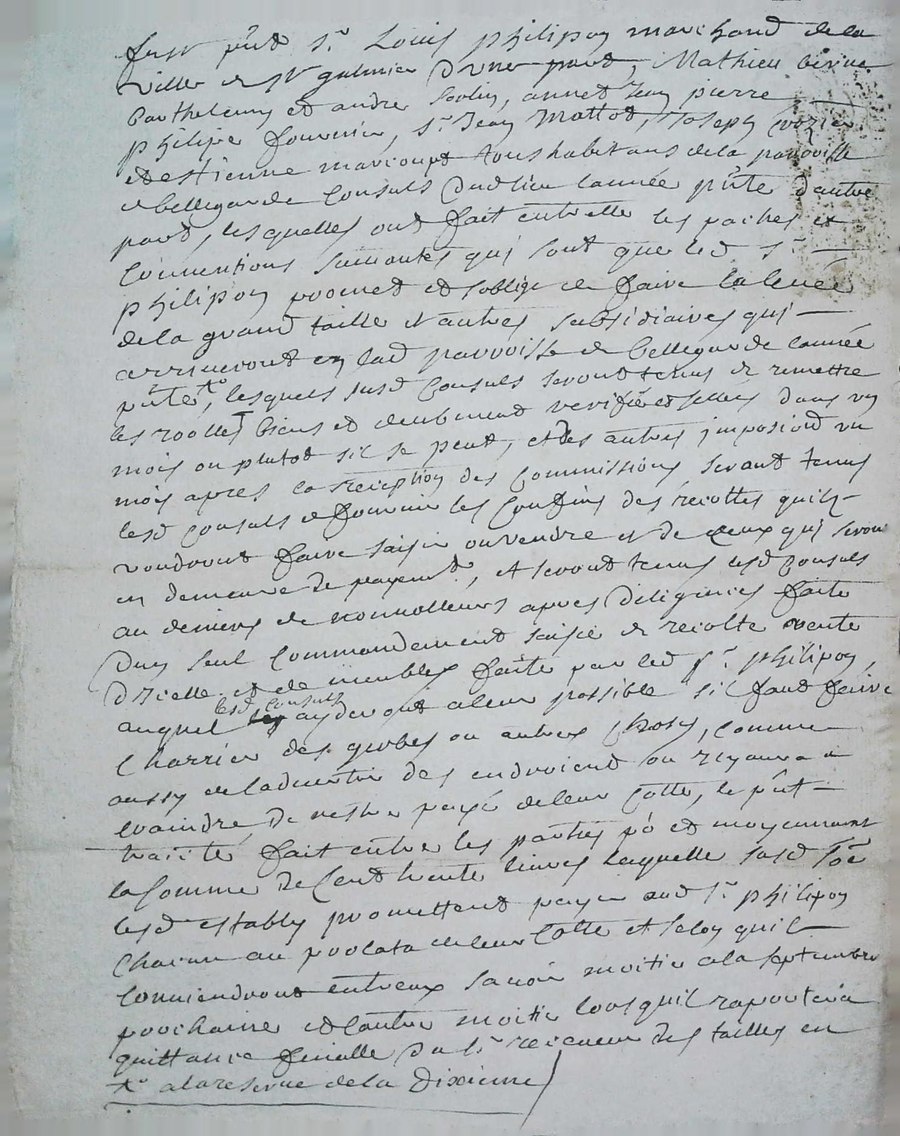 fust pñt Sr Louis philipon marchand de la
ville de St galmier d'une part, Mathieu
Barthelemy et andre Soulin, annet Jean pierre
philipe fournier, Sr Jean Mattot, Joseph Crozier
et estienne marcoupt tous habitans de la parroisse
de bellegarde Consuls dudlieu lannée pñte d'autre
part, lesquelles ont fait entrelle les paches et
Conventions suivantes qui sont que led Sr
philipon promet et soblige de faire la levée
de la grand taille et autres subsidiaires qui
arriveront en lad parroisse de bellegarde lannée
pñte, lesquels susd Consuls seront tenus de remettre
les roolles biens et deubment veriffié et sellés dans un
mois ou plutot sil se peut, et des autres imposiõns un
mois apres la reception des Commissions seront tenus
lesd Consuls de fournir les Confins des recoltes quils
voudront faire saisir ou vendre et de ceux qui seront
en demeure de payemt, et seront tenus lesd Consuls
au deniers de nonvalleurs apres diligences faite
d'un seul Commandement saisie de recolte vente
d'icelle et de meubles faite par led Sr philipon,
auquel lesd Consuls ayderont a leur possible sil faut faire
Charrier des gerbes ou autres Choses, Comme
aussy de ladvertir des endroient ou ny aura a
Craindre de nestre payé de leur Cotte, le pñt
traicté fait entre les parties po et moyennant
la somme de Cent trente livres laquelle susd soe
lesd establys promettent payer aud Sr philipon
Chacun au proolata de leur Cotte et selon quil
Conviendront entreux savoir moitié a la septembre
prochaine et lautre moitié lorsquil raportera
quittance finalle du Sr receveur des tailles en
a la reserve de la dixieme